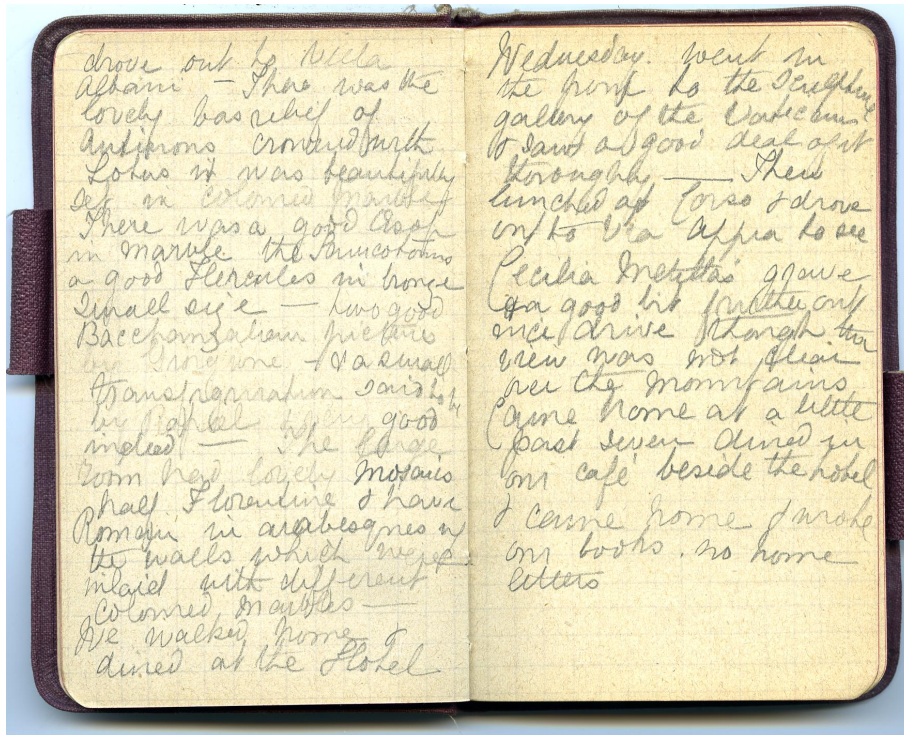 drove out to Villa
Albani — There was the
lovely bas relief of
Antinous crowned with
Lotus it was beautifully
set in coloured marbles
There was a good Esop
in marble the Sauroctonus
a good Hercules in bronze
small size — two good
Bacchanalian pictures
by Giorgione & a small
transfiguration said to be
by Rafael very good
indeed — The large
room had lovely mosaics
half Florentine & half
Roman in arabesques in
the walls which were
inlaid with different
coloured marbles —
We walked home &
dined at the Hotel
Wednesday. went in
the front to the Sculpture
gallery of the Vatican
& saw a good deal of it
thoroughly — Then
lunched at Corso & drove
out to Via Appia to see
Cecilia Metella's grave
& a good bit further on
nice drive though the
view was not clear
over the mountains
Came home at a little
past seven dined in
our café beside the hotel
& came home & wrote
our books. no home
letters